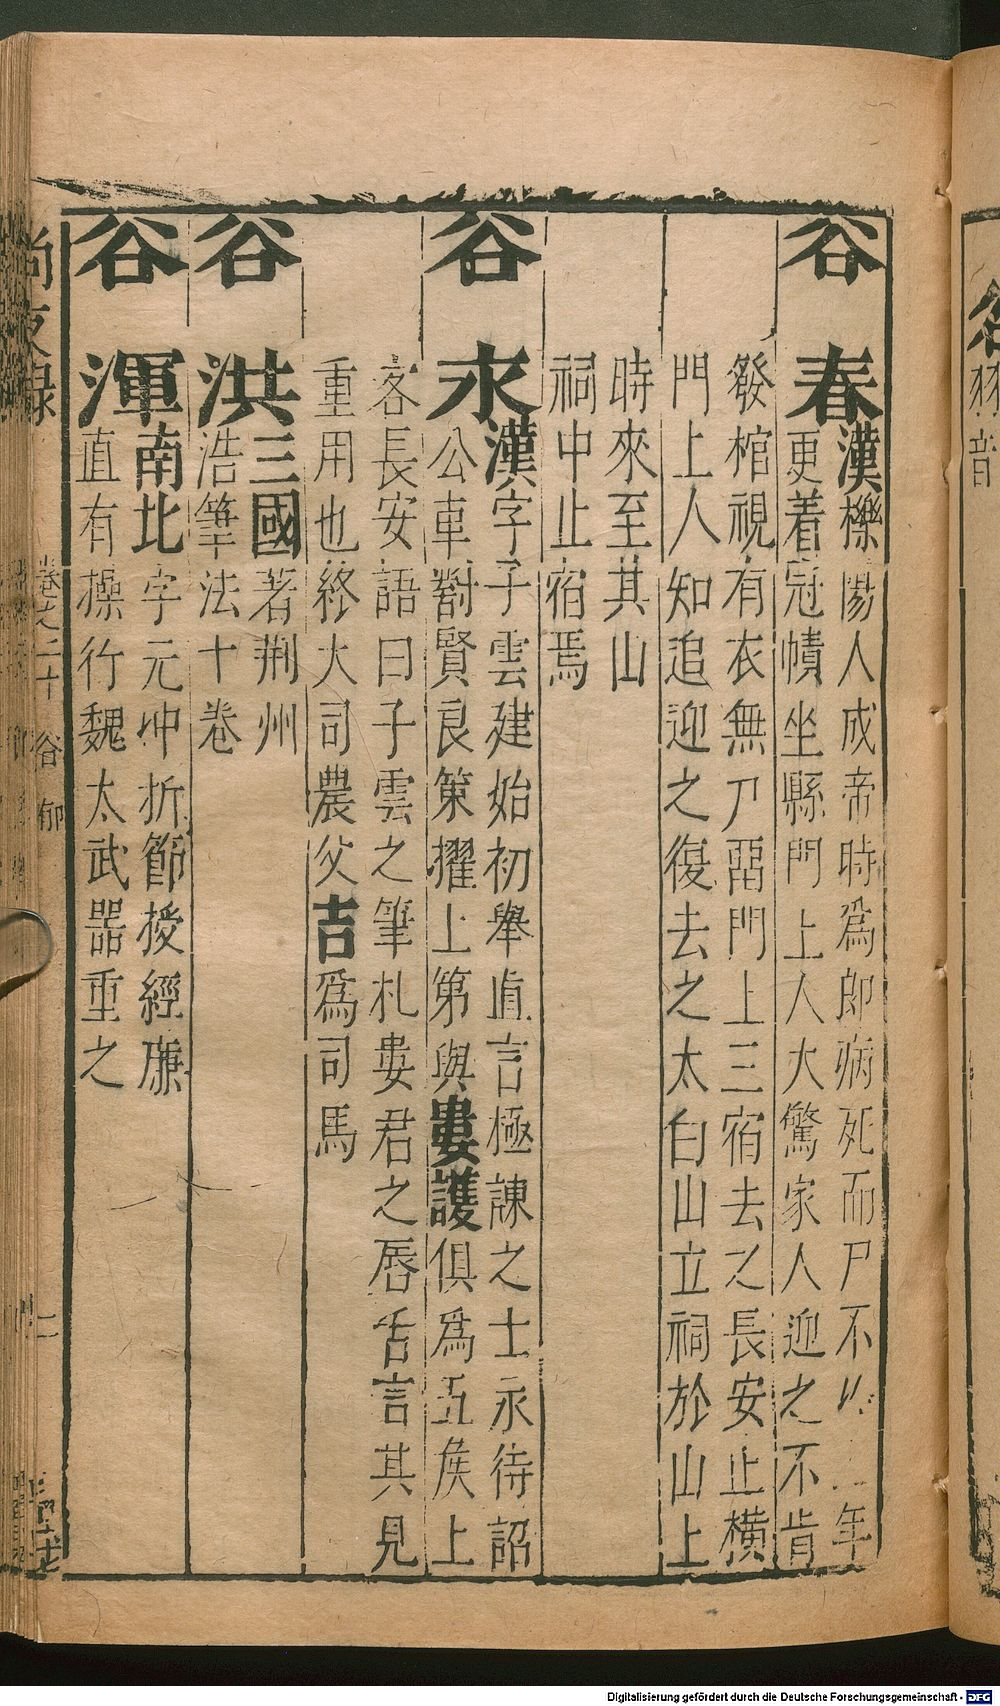 谷春漢櫟陽人成帝時爲郎病死而尸不年
更着冠幘坐縣門上人大驚家人迎之不肯
發棺視有衣無尸留門上三宿去之長安止橫
門上人知追迎之復去之太白山立祠於山上
時來至其山
祠中止宿焉
谷永漢字子雲建始初舉直言極諫之士永待詔
公車對賢良策擢上第與婁護俱爲五矦上
客長安語曰子雲之筆札婁君之唇舌言其見
重用也終大司農父吉爲司馬
谷洪三國著荆州
浩筆法十卷
谷渾南北字元冲折節授經
直有操行魏太武器重之
尚友錄
卷之二十
谷
郁
二
音
Digitalisierung gefördert durch die Deutsche Forschungsgemeinschaft - DFG